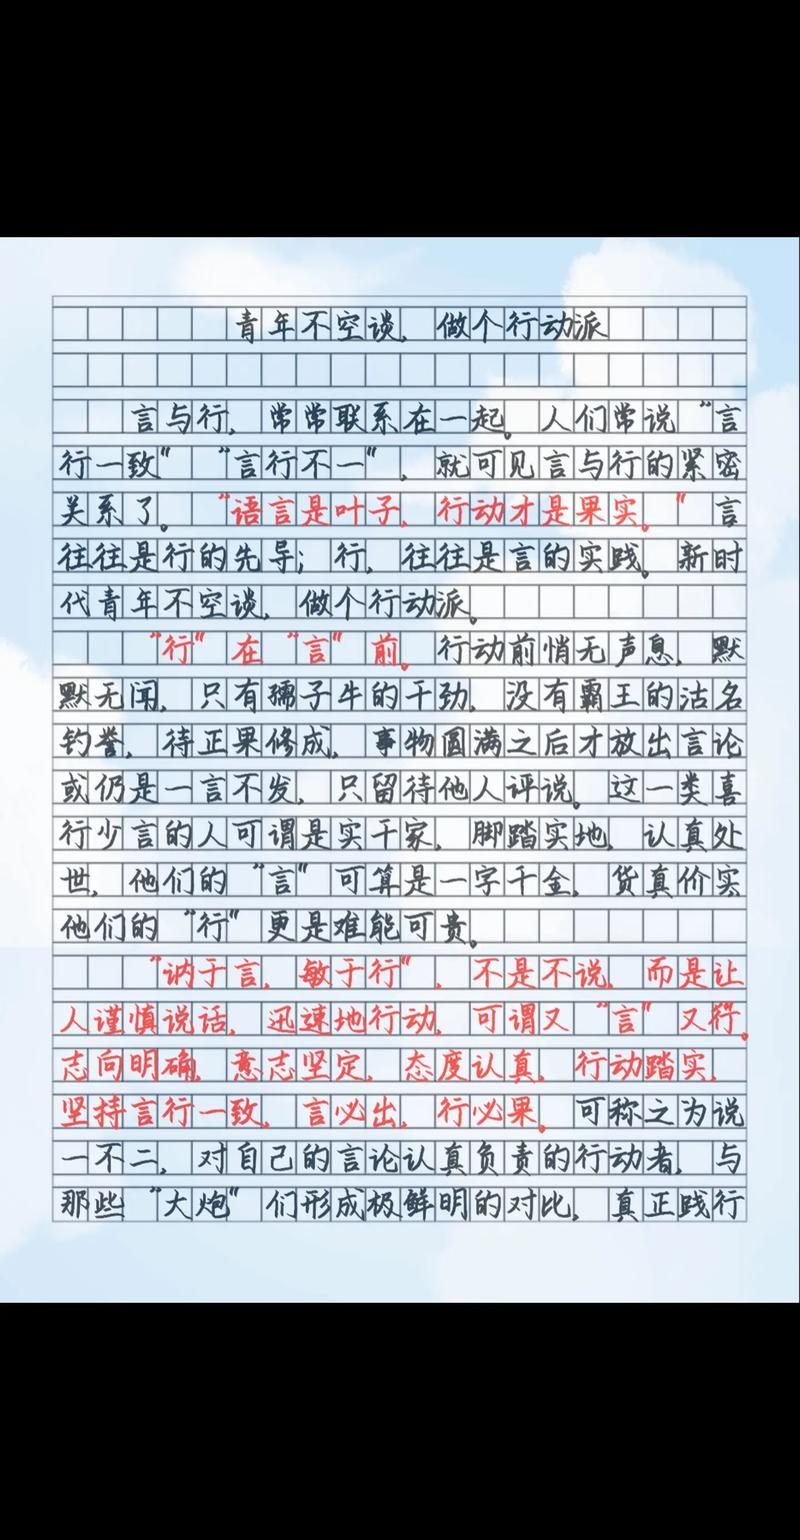 青年不空谈，做个行动派
言与行，常常联系在一起。人们常说“言
行一致”“言行不一”，就可见言与行的紧密
关系了。“语言是叶子，行动才是果实。”言
往往是行的先导；行，往往是言的实践。新时
代青年不空谈，做个行动派。
“行”在“言”前。行动前悄无声息，默
默无闻，只有孺子牛的干劲，没有霸王的沽名
钓誉，待正果修成，事物圆满之后才放出言论
或仍是一言不发，只留待他人评说。这一类喜
行少言的人可谓是实干家，脚踏实地，认真处
世，他们的“言”可算是一字千金，货真价实
他们的“行”更是难能可贵。
“讷于言，敏于行”，不是不说，而是让
人谨慎说话，迅速地行动，可谓又“言”又行。
志向明确，意志坚定，态度认真，行动踏实，
坚持言行一致，言必出，行必果。可称之为说
一不二，对自己的言论认真负责的行动者，与
那些“大炮”们形成极鲜明的对比，真正践行